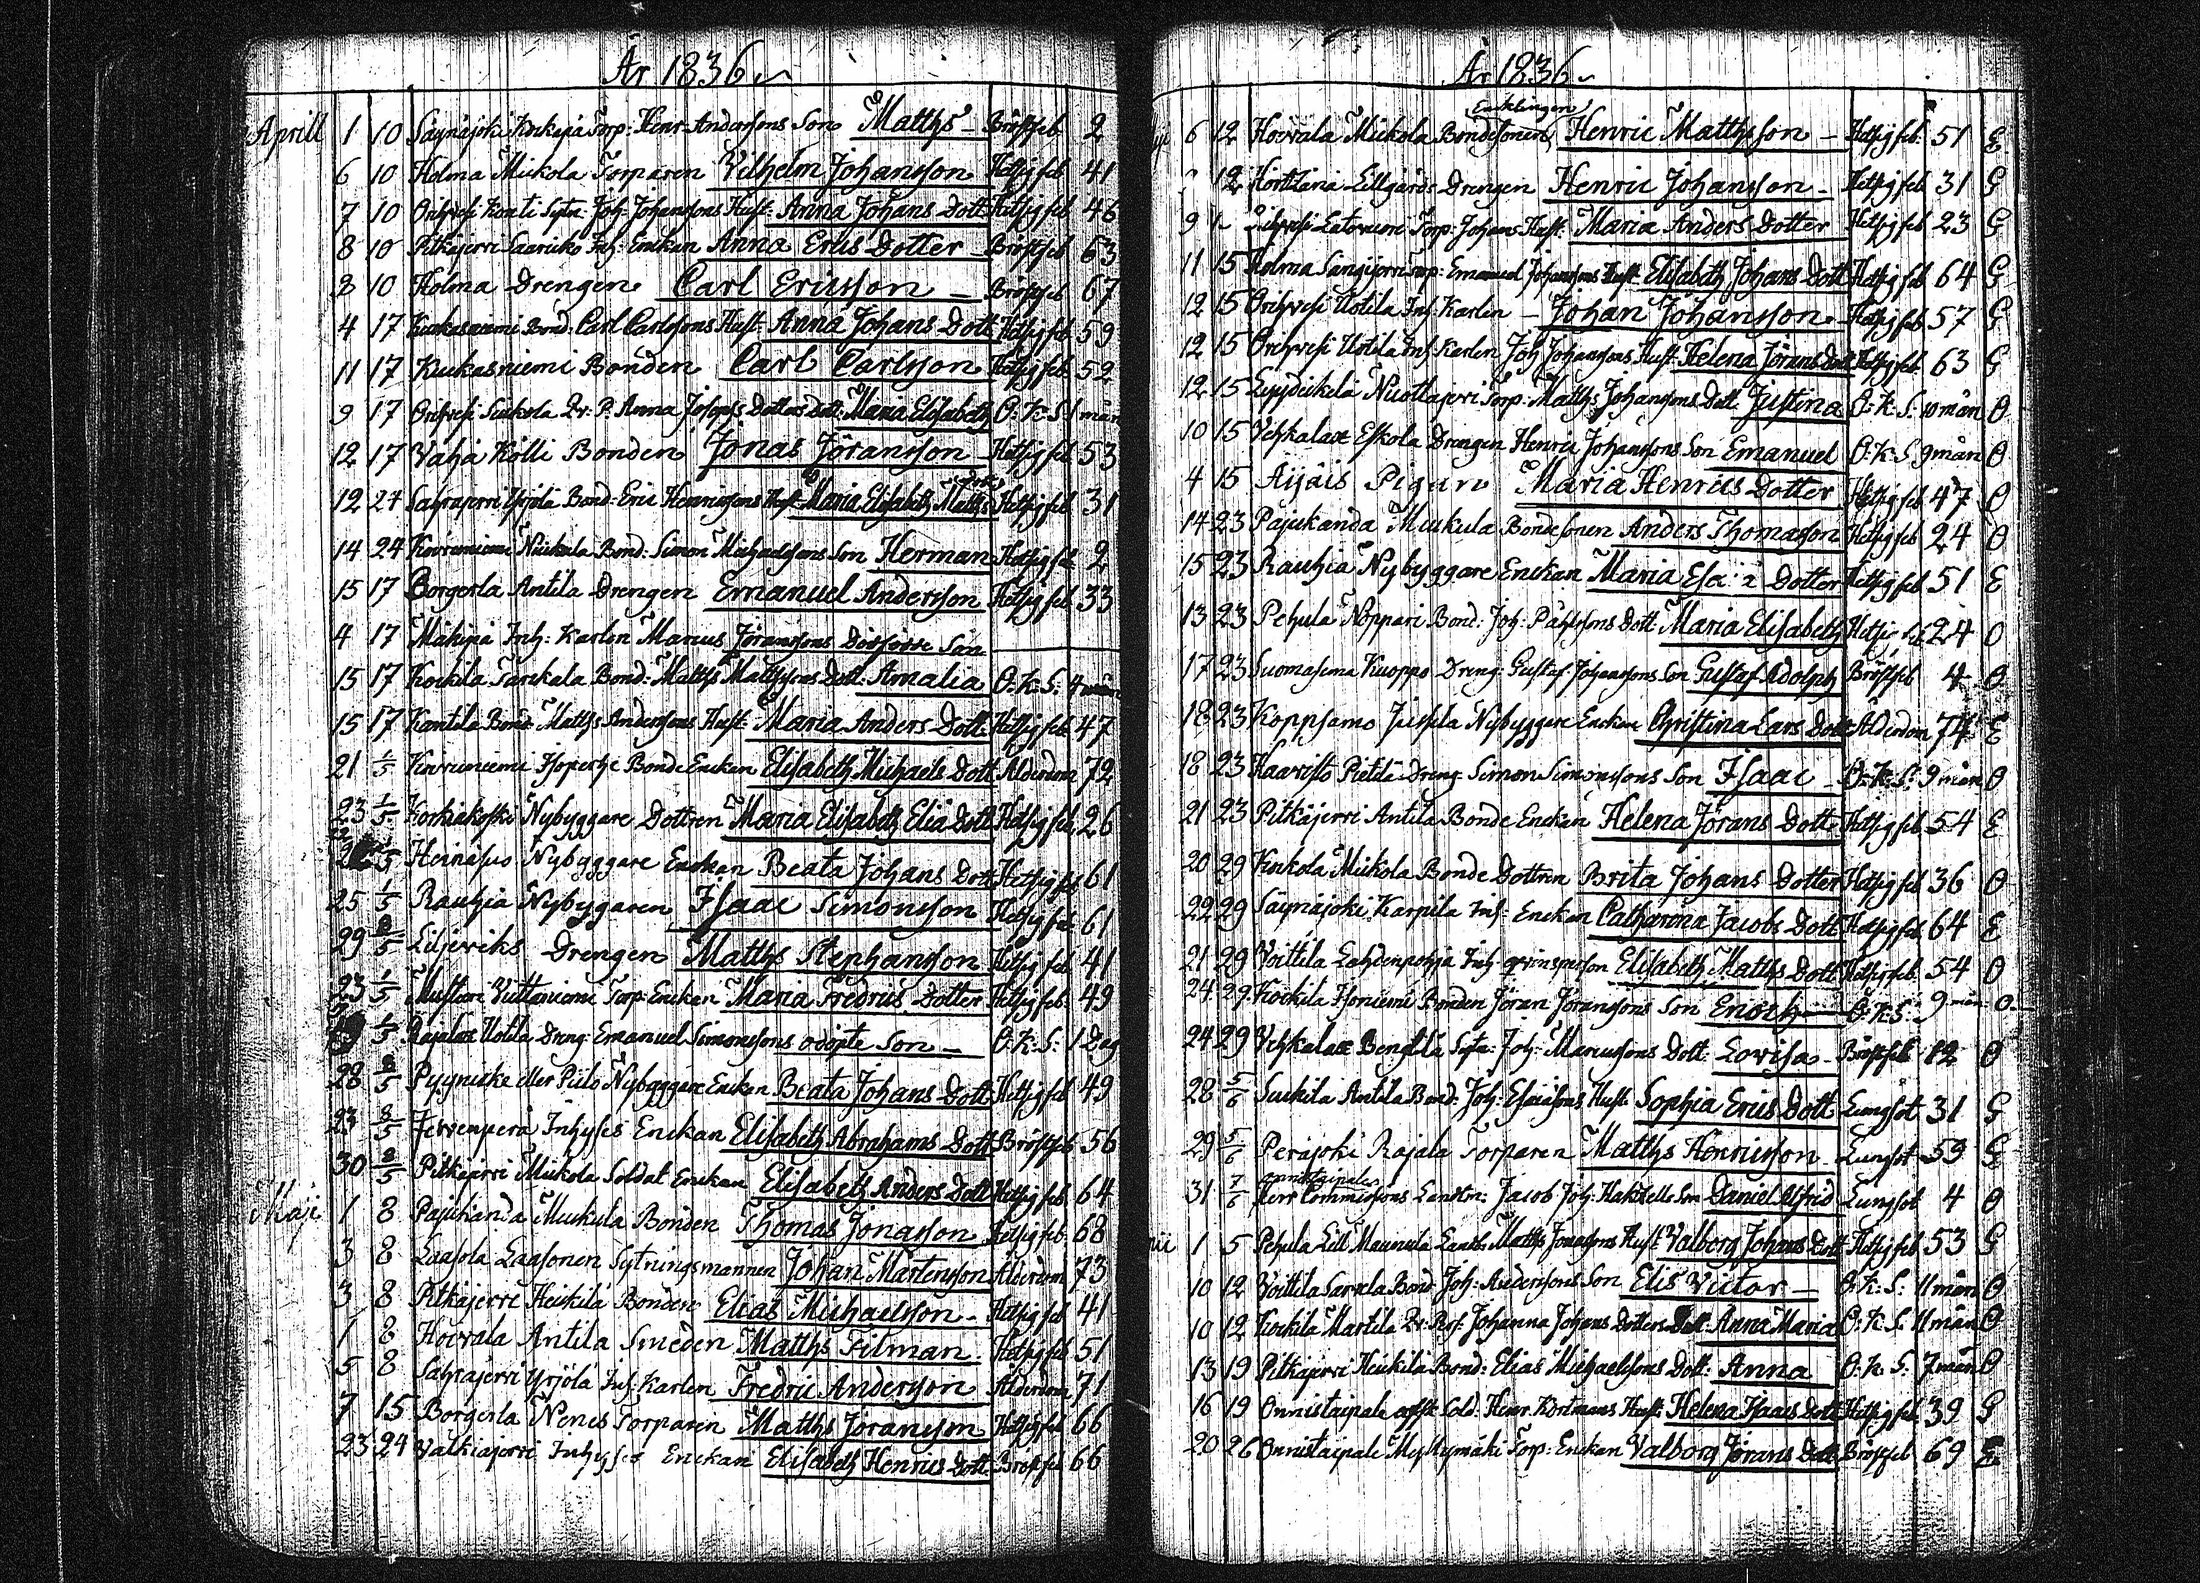 År 1836
Aprill 1 10 Säynäjoki Torp: Henr Anderssons Son Matths Bröstfeb 2
6 10 Holma Mickola Torparen Vilhelm Johansson Hetsigfeb 41
7 10 Orihvesi Konti Joh: Johanssons Hust: Anna Johans Dott Hetsigfeb 46
8 10 Pitkäjerri Saarikko Inh: Enckan Anna Erics Dotter Bröstfeb 63
8 10 Holma Drengen Carl Ericsson Bröstfeb 67
4 17 Kuckasniemi Bond: Carl Carlssons Hust: Anna Johans Dott Hetsigfeb 59
11 17 Kuckasniemi Bonden Carl Carlsson Hetsigfeb 52
9 17 Orihvesi Suckola Qv: P. Anna Josephs Dotters Dott: Maria Elisabeth O: K: S: 1 mån
12 17 Vaha Kölli Bonden Jonas Jöransson Hetsigfeb 53
12 24 Sahrajerri Yrjölä Bond: Eric Henricssons Hust: Maria Elisabeth Matths Dott Hetsigfeb 31
14 24 Bond: Simon Michaelssons Son Herman Hetsigfeb 2
15 17 Borgerla Antila Drengen Emanuel Andersson Hetsigfeb 33
4 17 Mahipä Inh: Karlen Marcus Jöranssons Dödfödde Son
15 17 Kockila Bond: Matths Matthssons Dott: Amalia O: K: S: 4 mån
15 17 Kontila Bond Matths Anderssons Hust: Maria Anders Dott: Hetsigfeb 47
21 1/5 Bonde Enckan Elisabeth Michaels Dott Ålderdom 72
23 1/5 Korkiakoski Nybyggare Dottren Maria Elisabeth Eliä Dott Hetsigfeb 26
1/5 Heinäsuo Nybyggare Enckan Beata Johans Dott Hetsigfeb 61
25 1/5 Rauhia Nybyggaren Isaac Simonsson Hetsigfeb 61
29 8/5 Liljeriks Drengen Matths Stephansson Hetsigfeb 41
23 1/5 Torp: Enckan Maria Fredrics Dotter Hetsigfeb 49
1/5 Rajalax Uotila Dreng: Emanuel Simonssons odöpte Son O: K: S: 1 Dag
28 8/5 eller Piilo Nybyggare Enckan Beata Johans Dott Hetsigfeb 49
23 8/5 Jervenperä Inhyses Enckan Elisabeth Abrahams Dott Bröstfeb 56
30 8/5 Pitkäjerri Mickola Soldat Enckan Elisabeth Anders Dott Hetsigfeb 64
Maji 1 8 Pajukanda Muckula Bonden Thomas Jonasson Hetsigfeb 68
3 8 Laasola Laasonen Sytningsmannen Johan Mårtensson Ålderdom 73
3 8 Pitkäjerri Heickilä Bonden Elias Michaelsson Hetsigfeb 41
1 8 Hovrala Antila Smeden Matths Filman Hetsigfeb 51
5 8 Sahrajerri Yrjölä Inh: Karlen Fredric Andersson Ålderdom 71
7 15 Borgerla Nenis Torparen Matths Jöransson Hetsigfeb 66
23 24 Valkiajerri Inhyses Enckan Elisabeth Henrics Dott Bröstfeb 66
År 1836
6 12 Hovrala Mickola Bondesonen Enklingen Henric Matthsson Hetsigfeb: 51 E
12 Lillgårds Drengen Henric Johansson Hetsigfeb 31 G
9 Torp: Johans Hust: Maria Anders Dotter Hetsigfeb 23 G
11 15 Holma Torp: Emanuel Johanssons Hust: Elisabeth Johans Dott Hetsigfeb 64 G
12 15 Orihvesi Uotila Inh: Karlen Johan Johansson Hetsigfeb 57 G
12 15 Orihvesi Uotila Inh: Karlen Joh Johanssons Hust: Helena Jörans Dott Hetsigfeb 63 G
12 15 Torp: Matths Johanssons Dott: Justina O: K: S: 10 mån O
10 15 Vehkalax Eskola Drengen Henric Johanssons Son Emanuel O: K: S: 9 mån O
4 15 Äijäis Pigan Maria Henrics Dotter Hetsigfeb 47 O
14 23 Pajukanda Muckula Bondesonen Anders Thomasson Hetsigfeb 24 O
15 23 Rauhia Nybyggare Enckan Maria Esaiä Dotter Hetsigfeb 51 E
13 23 Pehula Noppari Bond: Joh: Påhlssons Dott: Maria Elisabeth Hetsigfeb 24 O
17 23 Suomasema Kuoppo Dreng: Gustaf Johanssons Son Gustaf Adolph Bröstfeb 4 O
18 23 Koppsamo Nybyggare Enckan Christina Lars Dott Ålderdom 74 E
18 23 Haavisto Pietilä Dreng: Simon Simonssons Son Isaac O: K: S: 9 mån O
21 23 Pitkäjerri Antila Bonde Enckan Helena Jörans Dott: Hetsigfeb 54 E
20 29 Kockola Mickola Bonde Dottren Brita Johans Dotter Hetsigfeb 36 O
22 29 Säynäjoki Karpila Inh: Enckan Catharina Jacobs Dott Hetsigfeb 64 E
21 29 Voittila Lahdenpohja Inh: qvinsperson Elisabeth Matths Dott Hetsigfeb 54 O
24 29 Kockila Isoniemi Bonden Jöran Jöranssons Son Enoch O: K: S: 9 mån O
24 29 Vehkalax Bengtilä Joh: Marcussons Dott: Lovisa Bröstfeb 12 O
28 5/6 Suckila Antila Bond: Joh: Esaiässons Hust: Sophia Erics Dott Lungsot 31 G
29 5/6 Peräjoki Rajala Torparen Matths Henricsson Lungsot 59 G
31 7/6 Herr Commissions Landtm: Jacob Joh: Son Daniel Alfrid Lungsot 4 O
1 5 Pehula Lill Maunula Matths Jonassons Hust: Valborg Johans Dott Hetsigfeb 53 G
10 12 Voittila Sarvela Bond: Joh: Anderssons Son Elis Victor O: K: S: 11 mån O
10 12 Kockila Martila Qv: Pers: Johanna Johans Dotters Dott: Anna Maria O: K: S: 11 mån O
13 19 Pitkäjerri Heickilä Bond: Elias Michaelssons Dott: Anna O: K: S: 7 mån O
16 19 Onnistaipale Sold: Henr: Kortmans Hust: Helena Isaacs Dott Hetsigfeb 39 G
20 26 Onnistaipale Torp: Enckan Valborg Jörans Dott Bröstfeb 69 E